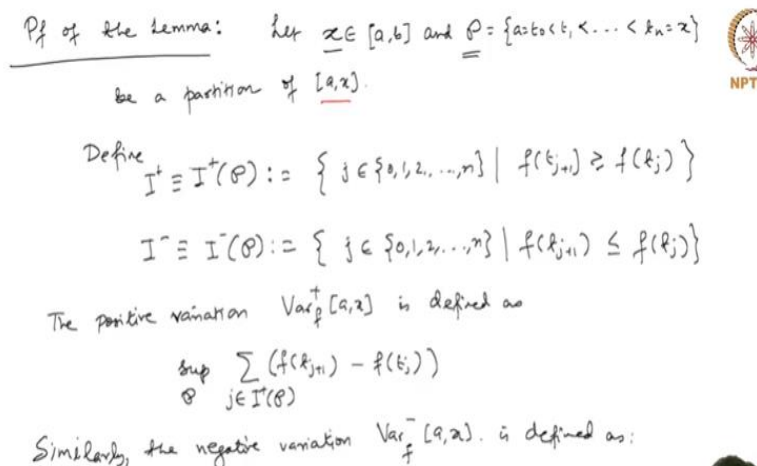 Pf of the Lemma: Let x ∈ [a,b] and P = {a=t₀<t₁<...<tₙ=x}
be a partition of [a,x].
NPT
Define
I⁺ ≡ I⁺(P) := { j ∈ {0,1,2,...,n} | f(tⱼ₊₁) ≥ f(tⱼ) }
I⁻ ≡ I⁻(P) := { j ∈ {0,1,2,...,n} | f(tⱼ₊₁) ≤ f(tⱼ) }
The positive variation Var⁺_f [a,x] is defined as
sup_P ∑_{j∈I⁺(P)} (f(tⱼ₊₁) − f(tⱼ))
Similarly, the negative variation Var⁻_f [a,x]. is defined as: